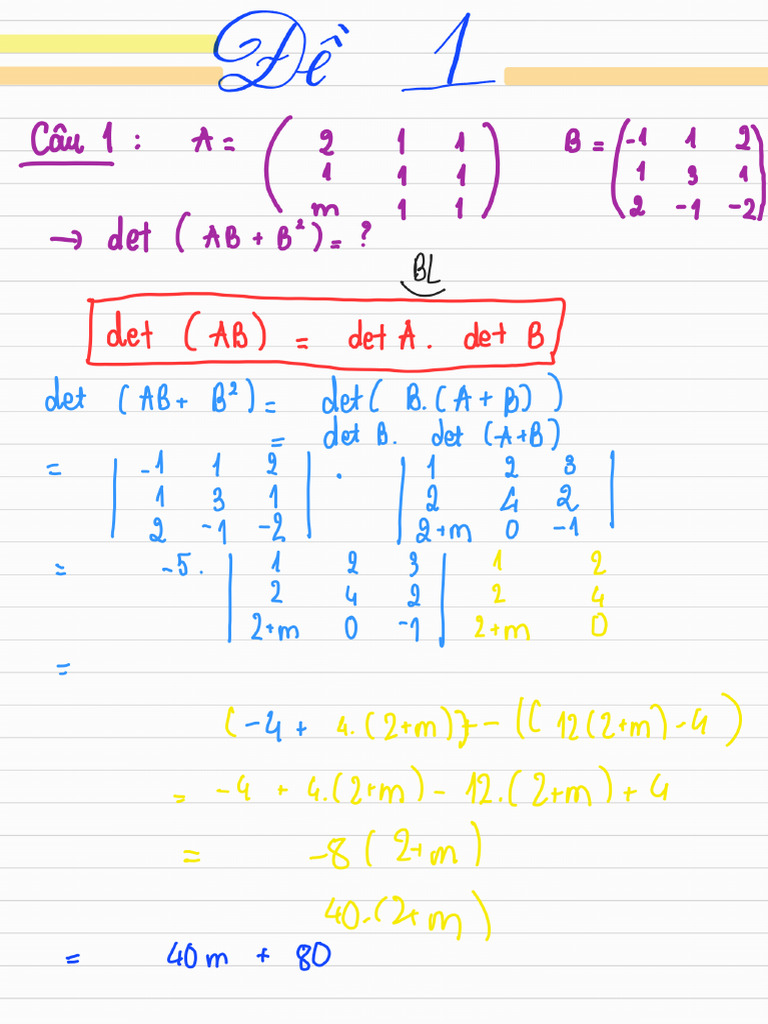 Đề 1
Câu 1 : A = ( 2 1 1 B = ( -1 1 2
1 1 1 ) 1 3 1 )
m 1 1 2 -1 -2
→ det ( AB + B² ) = ?
BL
det ( AB ) = det A . det B
det ( AB + B² ) = det ( B. ( A + B ) )
= det B . det ( A+B )
= | -1 1 2 | . | 1 2 3 |
1 3 1 2 4 2
2 -1 -2 2+m 0 -1
= -5 . | 1 2 3 | 1 2
2 4 2 2 4
2+m 0 -1 2+m 0
=
( -4 + 4.(2+m)) - (( 12(2+m) - 4 )
= -4 + 4.(2+m) - 12.(2+m) + 4
= -8 ( 2+m )
40.(2+m)
= 40m + 80